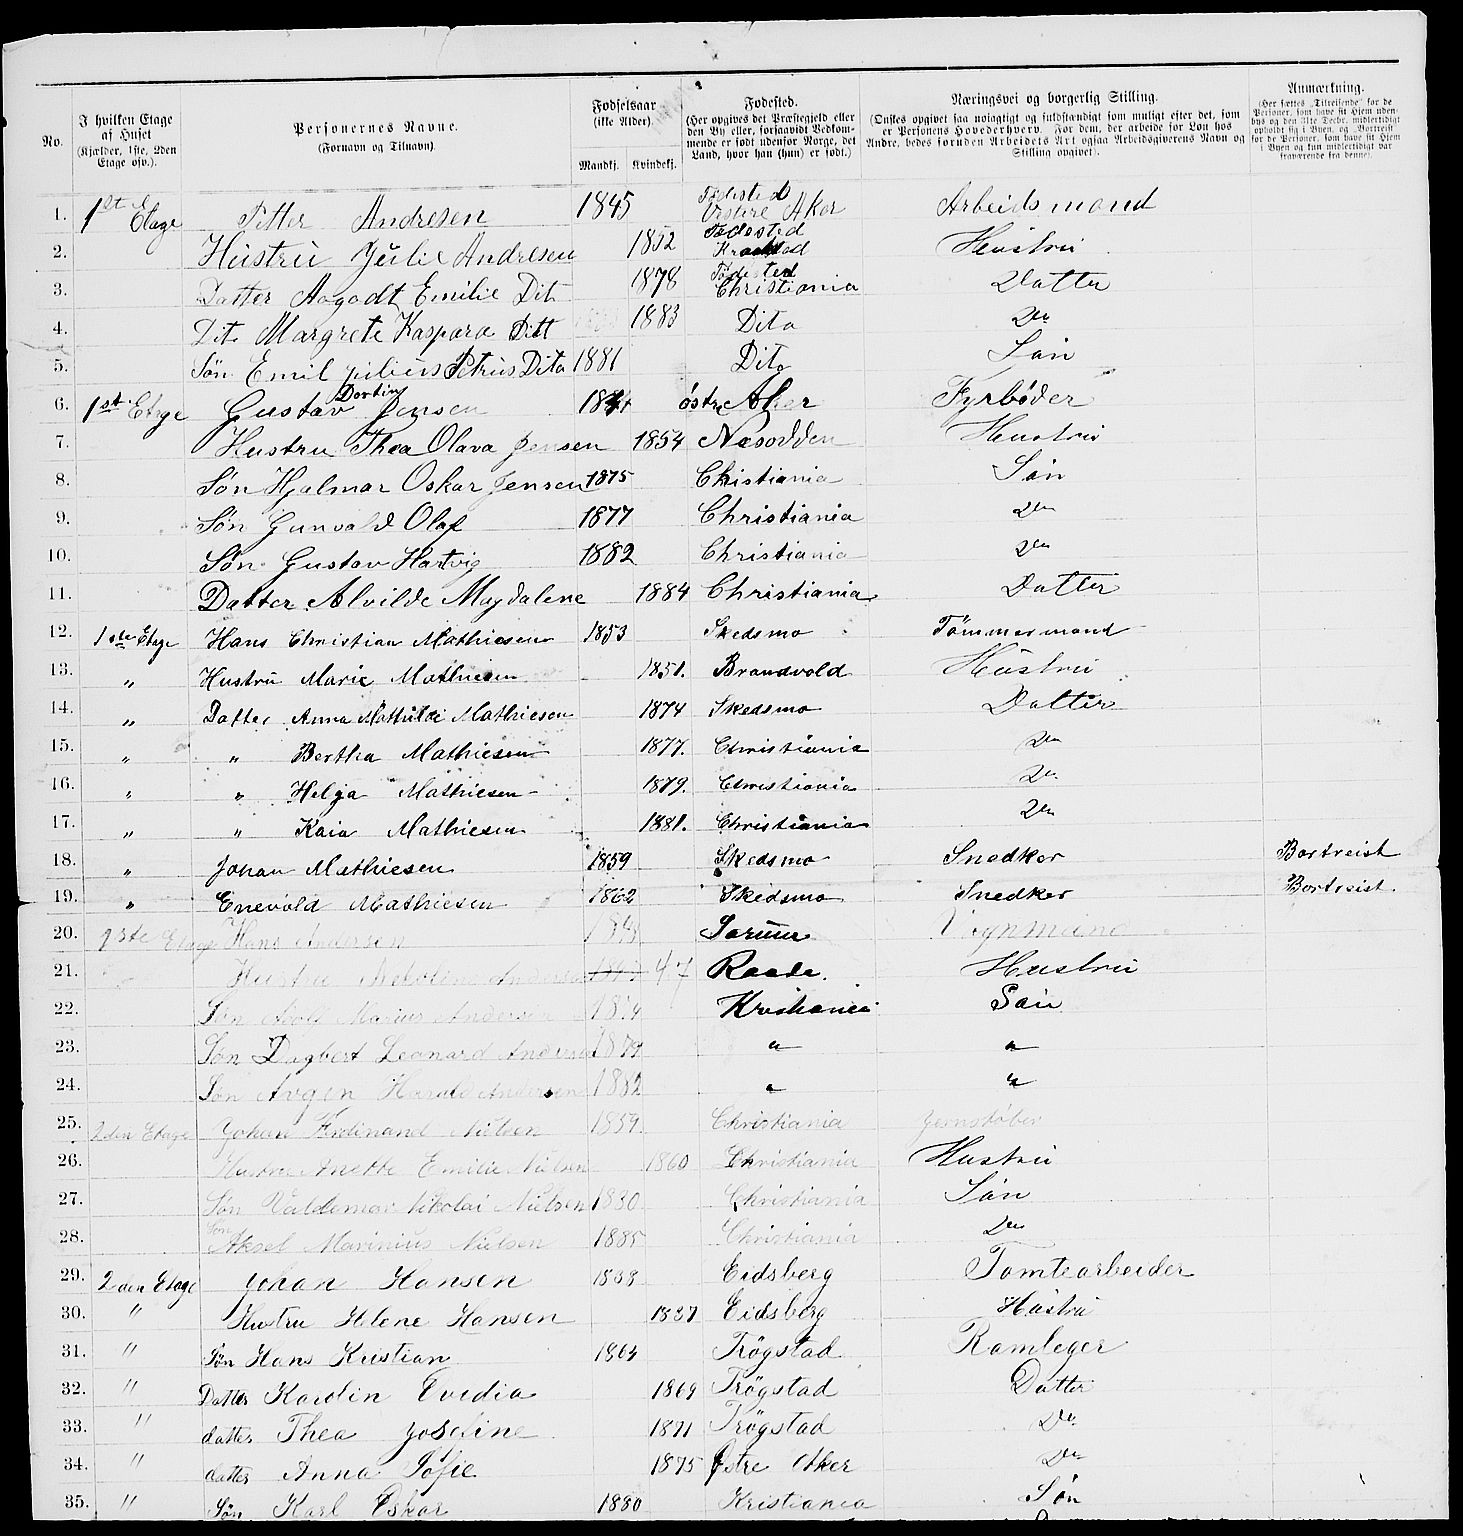 No.
I hvilken Etage af Huset (Kjælder, 1ste, 2den Etage osv.).
Personernes Navne. (Fornavn og Tilnavn).
Fødselsaar (ikke Alder).
Mandkj. Kvindekj.
Fødested. (Her opgives det Præstegjeld eller den By eller, forsaavidt Vedkommende er født udenfor Norge, det Land, hvor han (hun) er født.)
Næringsvei og borgerlig Stilling. (Ønskes opgivet saa nøiagtigt og fuldstændigt som muligt efter det, som er Personens Hovederhverv. For dem, der arbeide for Løn hos Andre, bedes foruden Arbeidets Art ogsaa Arbeidsgiverens Navn og Stilling opgivet).
Anmærkning. (Her sættes "Tilreisende" for de Personer, som have sit Hjem udenbys og den 31te Decbr. midlertidigt opholdt sig i Byen, og "Bortreist" for de Personer, som have sit Hjem i Byen og kun midlertidigt var fraværende fra denne).
1. 1st Etage Pitter Andresen 1845 Fødested Vestre Aker Arbeidsmand
2. Hustru Julie Andresen 1852 Fødested Kraakstad Hustru
3. Datter Aagodt Emilie Dit 1878 Fødested Christiania Datter
4. Dit Margrete Kaspara Ditt 1883 Dito Do
5. Søn Emil Julius Petrus Dito 1881 Dito Søn
6. 1st Etage Gustav Jensen östre Aker Fyrbøder
7. Hustru Thea Olava Jensen 1854 Næsodden Hustru
8. Søn Hjalmar Oskar Jensen 1875 Christiania Søn
9. Søn Gunvald Olaf 1877 Christiania Do
10. Søn Gustav Hartvig 1882 Christiania Do
11. Datter Alvilde Magdalene 1884 Christiania Datter
12. 1ste Etage Hans Christian Mathiesen 1853 Skedsmo Tömmermand
13. " Hustru Marie Mathiesen 1851. Brandvold Hustru
14. " Datter Anna Mathilde Mathiesen 1874 Skedsmo Datter
15. " " Bertha Mathiesen 1877. Christiania Do
16. " " Helga Mathiesen 1879. Christiania Do
17. " " Kaia Mathiesen 1881. Christiania Do
18. " Johan Mathiesen 1859 Skedsmo Snedker Bortreist
19. " Enevold Mathiesen 1862 Skedsmo Snedker Bortreist.
20. 1ste Etage Hans Andersen Sorum Vognmand
21. Hustru Andersen 47 Raade. Hustru
22. Søn Adolf Marius Andersen Kristiania Søn
23. Søn Dagbert Leonard Andersen 1879 " "
24. Søn Avgen Harald Andersen 1882 " "
25. 2den Etage Johan Ferdinand Nielsen 1859 Christiania Jernstøber
26. Hustru Anette Emilie Nielsen 1860 Christiania Hustru
27. Søn Valdemar Nikolai Nielsen 1880 Christiania Søn
28. Søn Aksel Marinius Nielsen 1885 Christiania Do
29. 2den Etage Johan Hansen 1838 Eidsberg Tomtearbeider
30. " Hustru Helene Hansen 1837 Eidsberg Hustru
31. " Søn Hans Kristian 1864 Trögstad Ramleger
32. " Datter Karolin Ovidia 1869 Trögstad Datter
33. " datter Thea Josefine 1871 Trögstad Do
34. " datter Anna Sofie 1875 Østre Aker Do
35. " Søn Karl Oskar 1880 Kristiania Søn